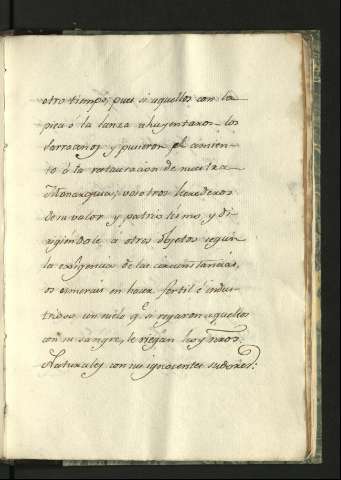 otro tiempo, pues si aquellos con la
pica ó la lanza ahuyentaron los
Sarracenos y pusieron el cimien-
to á la restauracion de nuestra
Monarquia; vosotros herederos
de su valor y patriotismo, y di-
rigiendole á otros objetos segun
la exîgencia de las circunstancias,
os esmerais en hacer fertil é indus-
trioso un suelo q.e si regaron aquellos
con su sangre, le riegan hoy nros.
Naturales con sus ignocentes sudores: